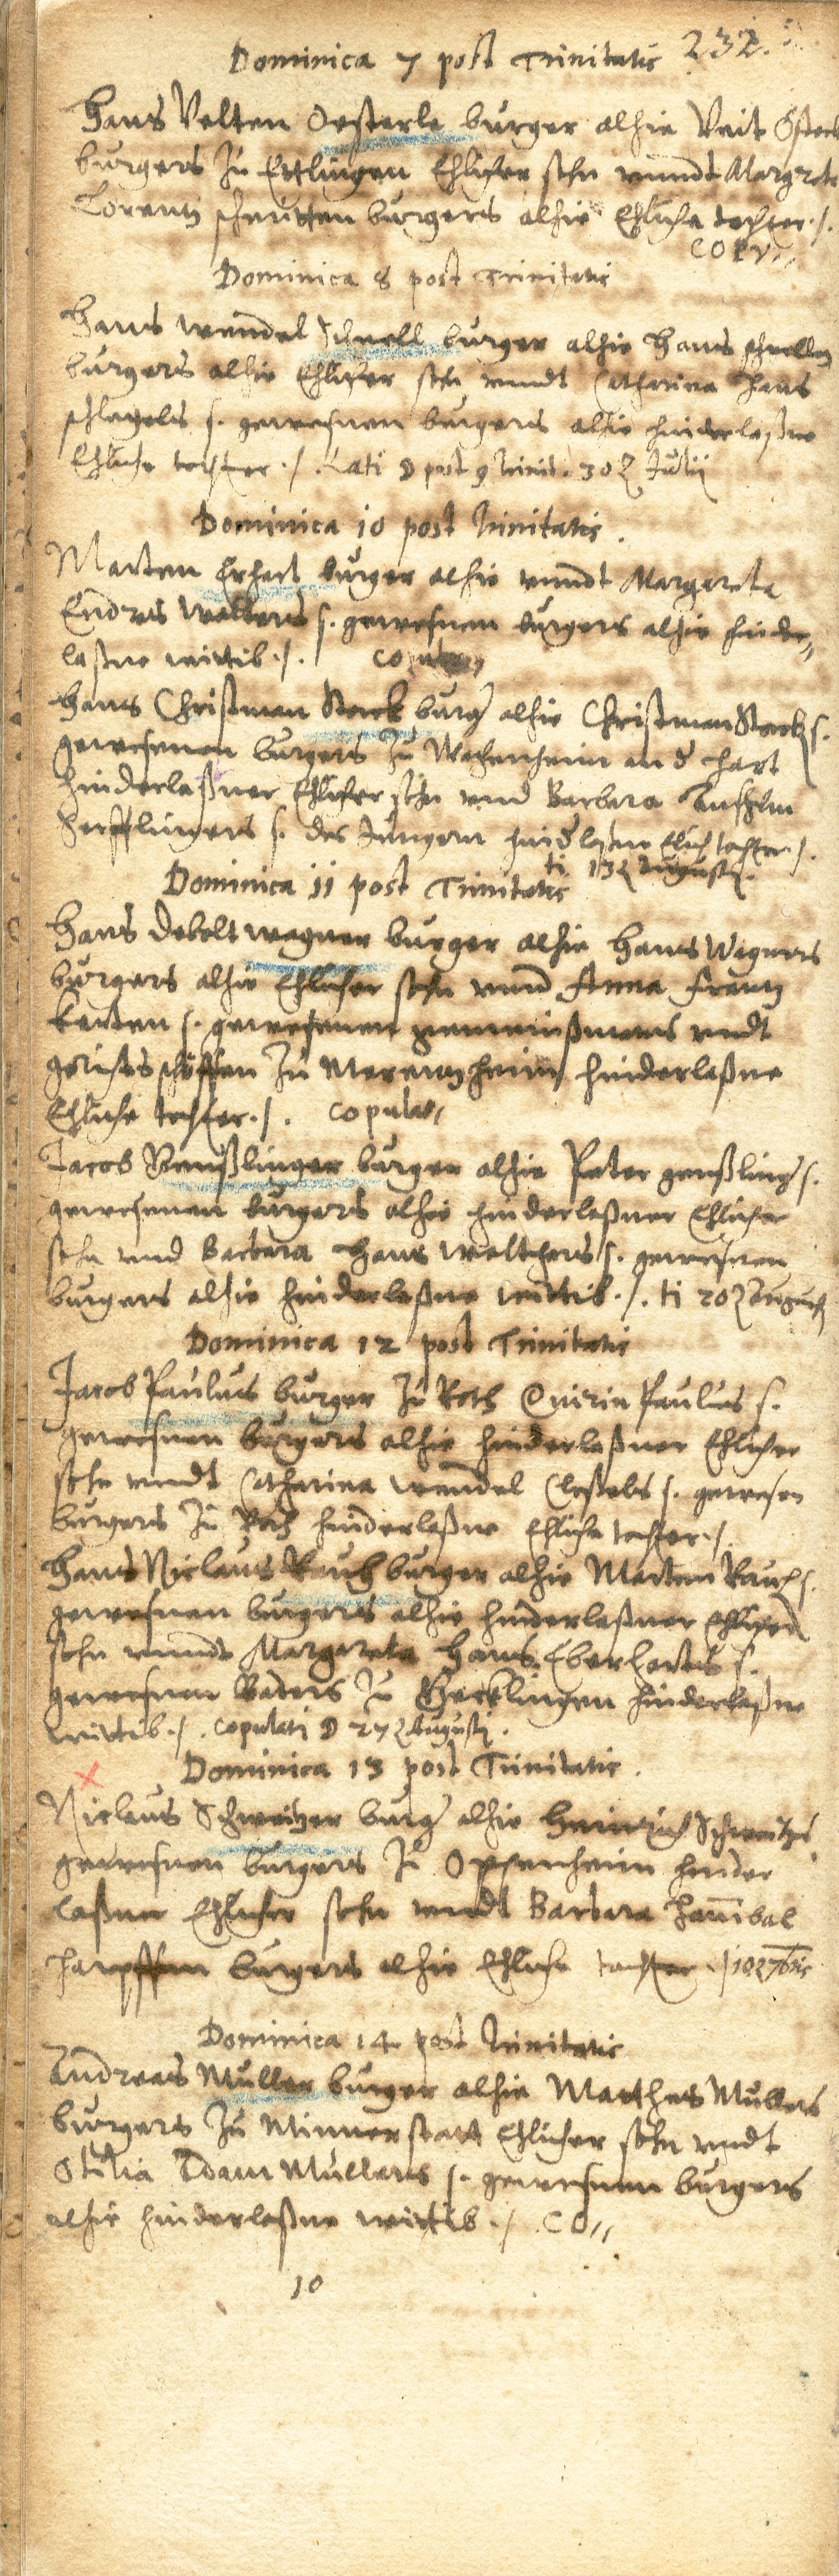 232.
Dominica 7 post Trinitatis
Hans Velten Oesterle burger alhie Veit Össterl
burgers zu Ettlingen Ehlicher sohn vnndt Margreta
Lorentz burgers alhie Ehliche tochter ./.
COPV//
Dominica 8 post Trinitatis
Hans Wendel Schnell burger alhie Hans schnellen
burgers alhie Ehlicher sohn vnndt Catharina Hans
schlegels s. gewesnen burgers alhie hinderlaßne
Ehliche tochter ./. Lati D post 9 Trinit. 30 Julii
Dominica 10 post Trinitatis .
Marten Erhart burger alhie vnndt Margareta
Endres Walters s. gewesnen burgers alhie hinder//
laßne wittib ./.
Hans Christman Starck burger alhie Christman Starcks s.
gewesenen burgers zu Wachenheim an d Hart
hinderlaßner Ehlicher sohn vnd Barbara Anshelm
s. des Jungern hinderlaßne Ehlich tochter ./.
ti 13 Augusti.
Dominica 11 post Trinitatis
Hans Debolt Wagner burger alhie Hans Wagners
burgers alhie Ehlicher sohn vnnd Anna Frantz
s. gewesenen gemeinßmans vndt
gerichtsschöffen zu hinderlaßne
Ehliche tochter ./. Copulat//
Jacob burger alhie Peter s.
gewesenen burgers alhie hinderlaßner Ehlicher
sohn vnd Barbara Hans Welschers s. gewesnen
burgers alhie hinderlaßne wittib ./. ti 20 Augusti
Dominica 12 post Trinitatis
Jacob Paulus burger zu Roth Quirin Paulus s.
gewesnen burgers alhie hinderlaßner Ehlicher
sohn vnndt Catharina Wendel s. gewesen
burgers zu Roth hinderlaßne Ehliche tochter ./.
Hans Niclaus Rauch burger alhie Marten Rauchs s.
gewesnen burgers alhie hinderlaßner Ehlicher
sohn vnndt Margareta Hans Eberharts s.
gewesnen Baders zu Göcklingen hinderlaßne
wittib ./. Copulati D 27 Augusti .
Dominica 13 post Trinitatis .
Niclaus Schweitzer burger alhie Heinrich Schweitzers
gewesnen burgers zu Oppenheim hinder
laßner Ehlicher sohn vnndt Barbara Hannibal
Harpffen burgers alhie Ehliche tochter ./. 10 7bris
Dominica 14 post Trinitatis
Andreas Müller burger alhie Matthes Müllers
burgers zu Minnerstatt Ehlicher sohn vndt
Otilia Adam Müllers s. gewesnen burgers
alhie hinderlaßne wittib ./. CO//
10